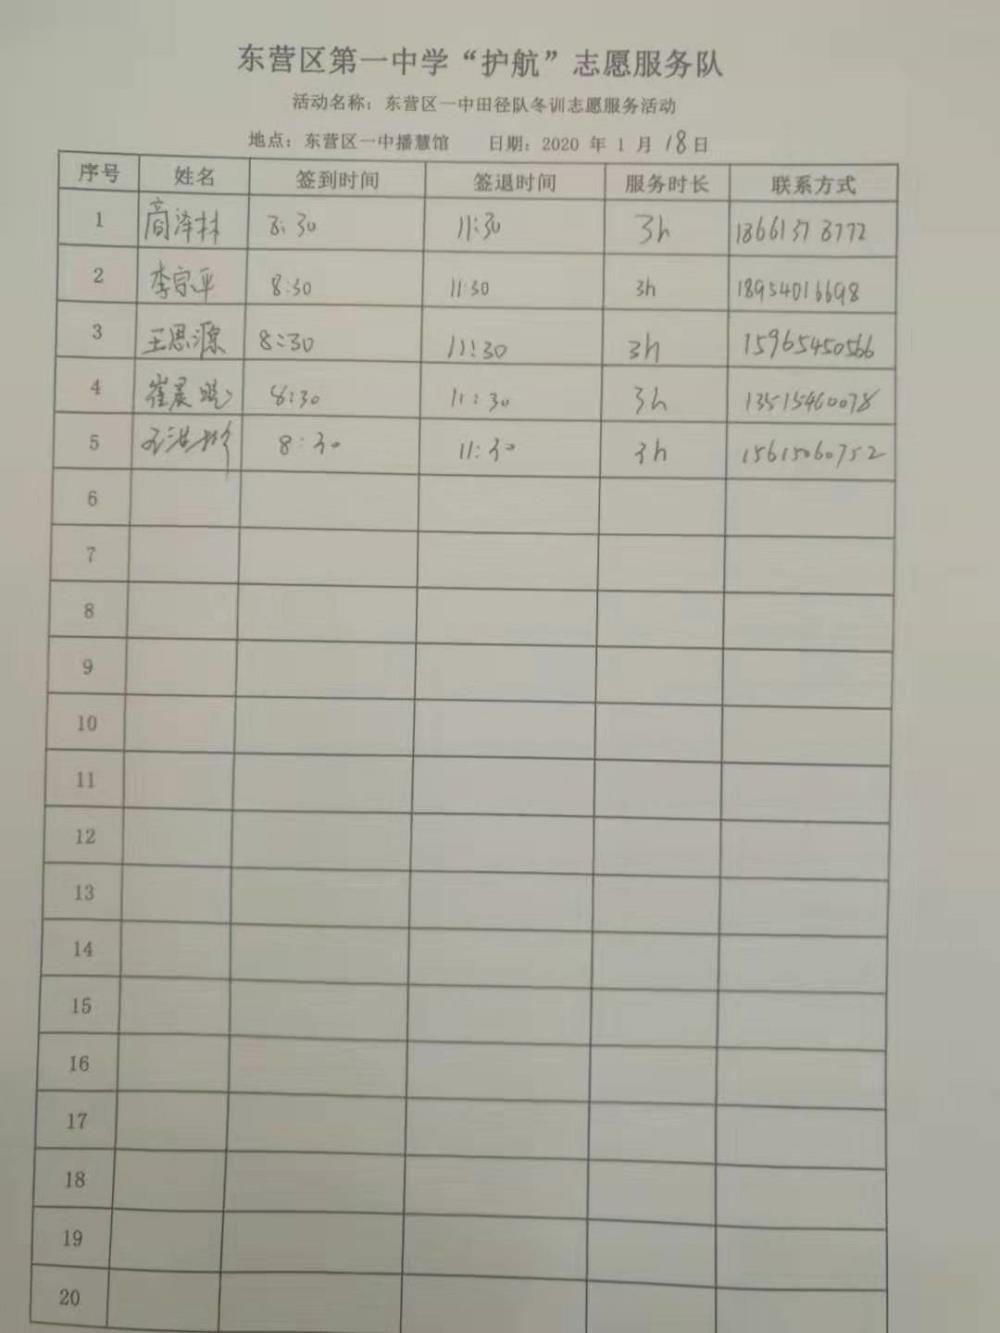 东营区第一中学“护航”志愿服务队
活动名称：东营区一中田径队冬训志愿服务活动
地点：东营区一中播慧馆 日期：2020 年 1 月 18日
序号 姓名 签到时间 签退时间 服务时长 联系方式
1 高泽林 8:30 11:30 3h 18661378772
2 李宗平 8:30 11:30 3h 18954016698
3 王思源 8:30 11:30 3h 15965450566
4 崔晨 8:30 11:30 3h 13515460078
5 8:30 11:30 3h 15615060752
6
7
8
9
10
11
12
13
14
15
16
17
18
19
20